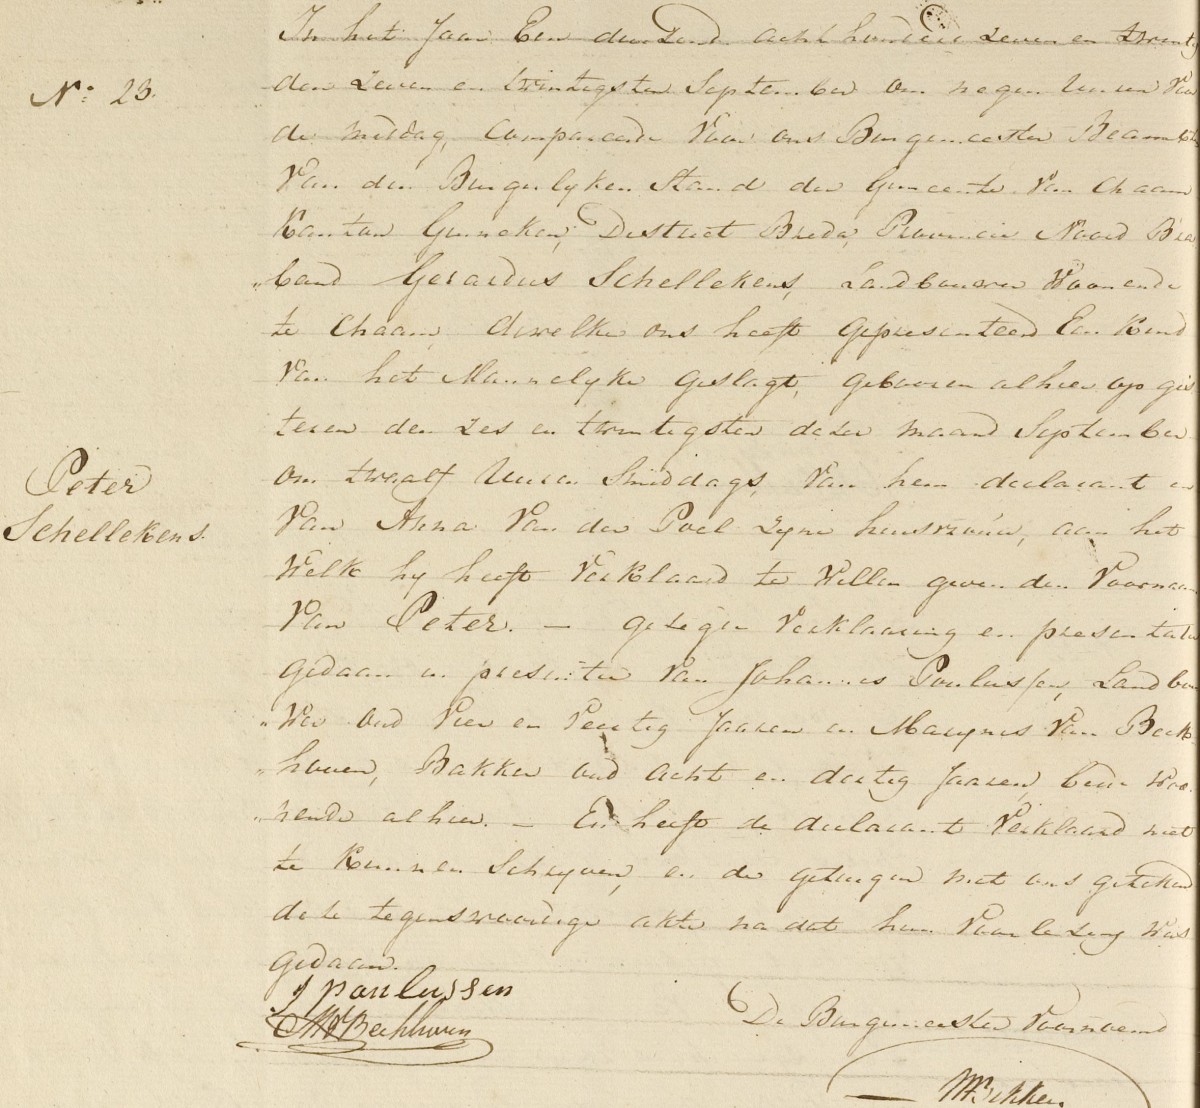 In het Jaar Een duizend acht honderd zeven en twintig
den zeven en twintigsten September om negen Uuren voor
de middag, Compareerde Voor ons Burgemeester Beambte
Van den Burgerlyken Stand der Gemeente Van Chaam
Kanton Ginneken, Destrict Breda, Provincie Noord Bra
„band Gerardus Schellekens, Landbouwer Woonende
te Chaam, dewelke ons heeft Gepresenteerd Een Kind
Van het Mannelyke Geslagt, Gebooren alhier op gis
teren den zes en twintigsten dezer maand September
om twaalf Uuren Smiddags, Van hem declarant en
Van Anna Van der Poel zyne huisvrouw, aan het
Welk hy heeft Verklaard te Willen geven den Voornaam
Van Peter. — gezegde Verklaaring en presentatie
gedaan in presentie Van Johannes Paulussen, Landbou
„Wer oud Vier en Veertig Jaaren en Marynis Van Beek
„hoven, Bakker oud acht en dertig Jaaren, beide Woo
„nende alhier. — En heeft de declarant Verklaard niet
te Kunnen Schryven, en de getuigen met ons getekend
deze tegenswoordige akte na dat hun Voorlezing Was
gedaan.
No: 23.
Peter
Schellekens.
J paulussen
MVBeekhoven
De Burgemeester Voornoemd